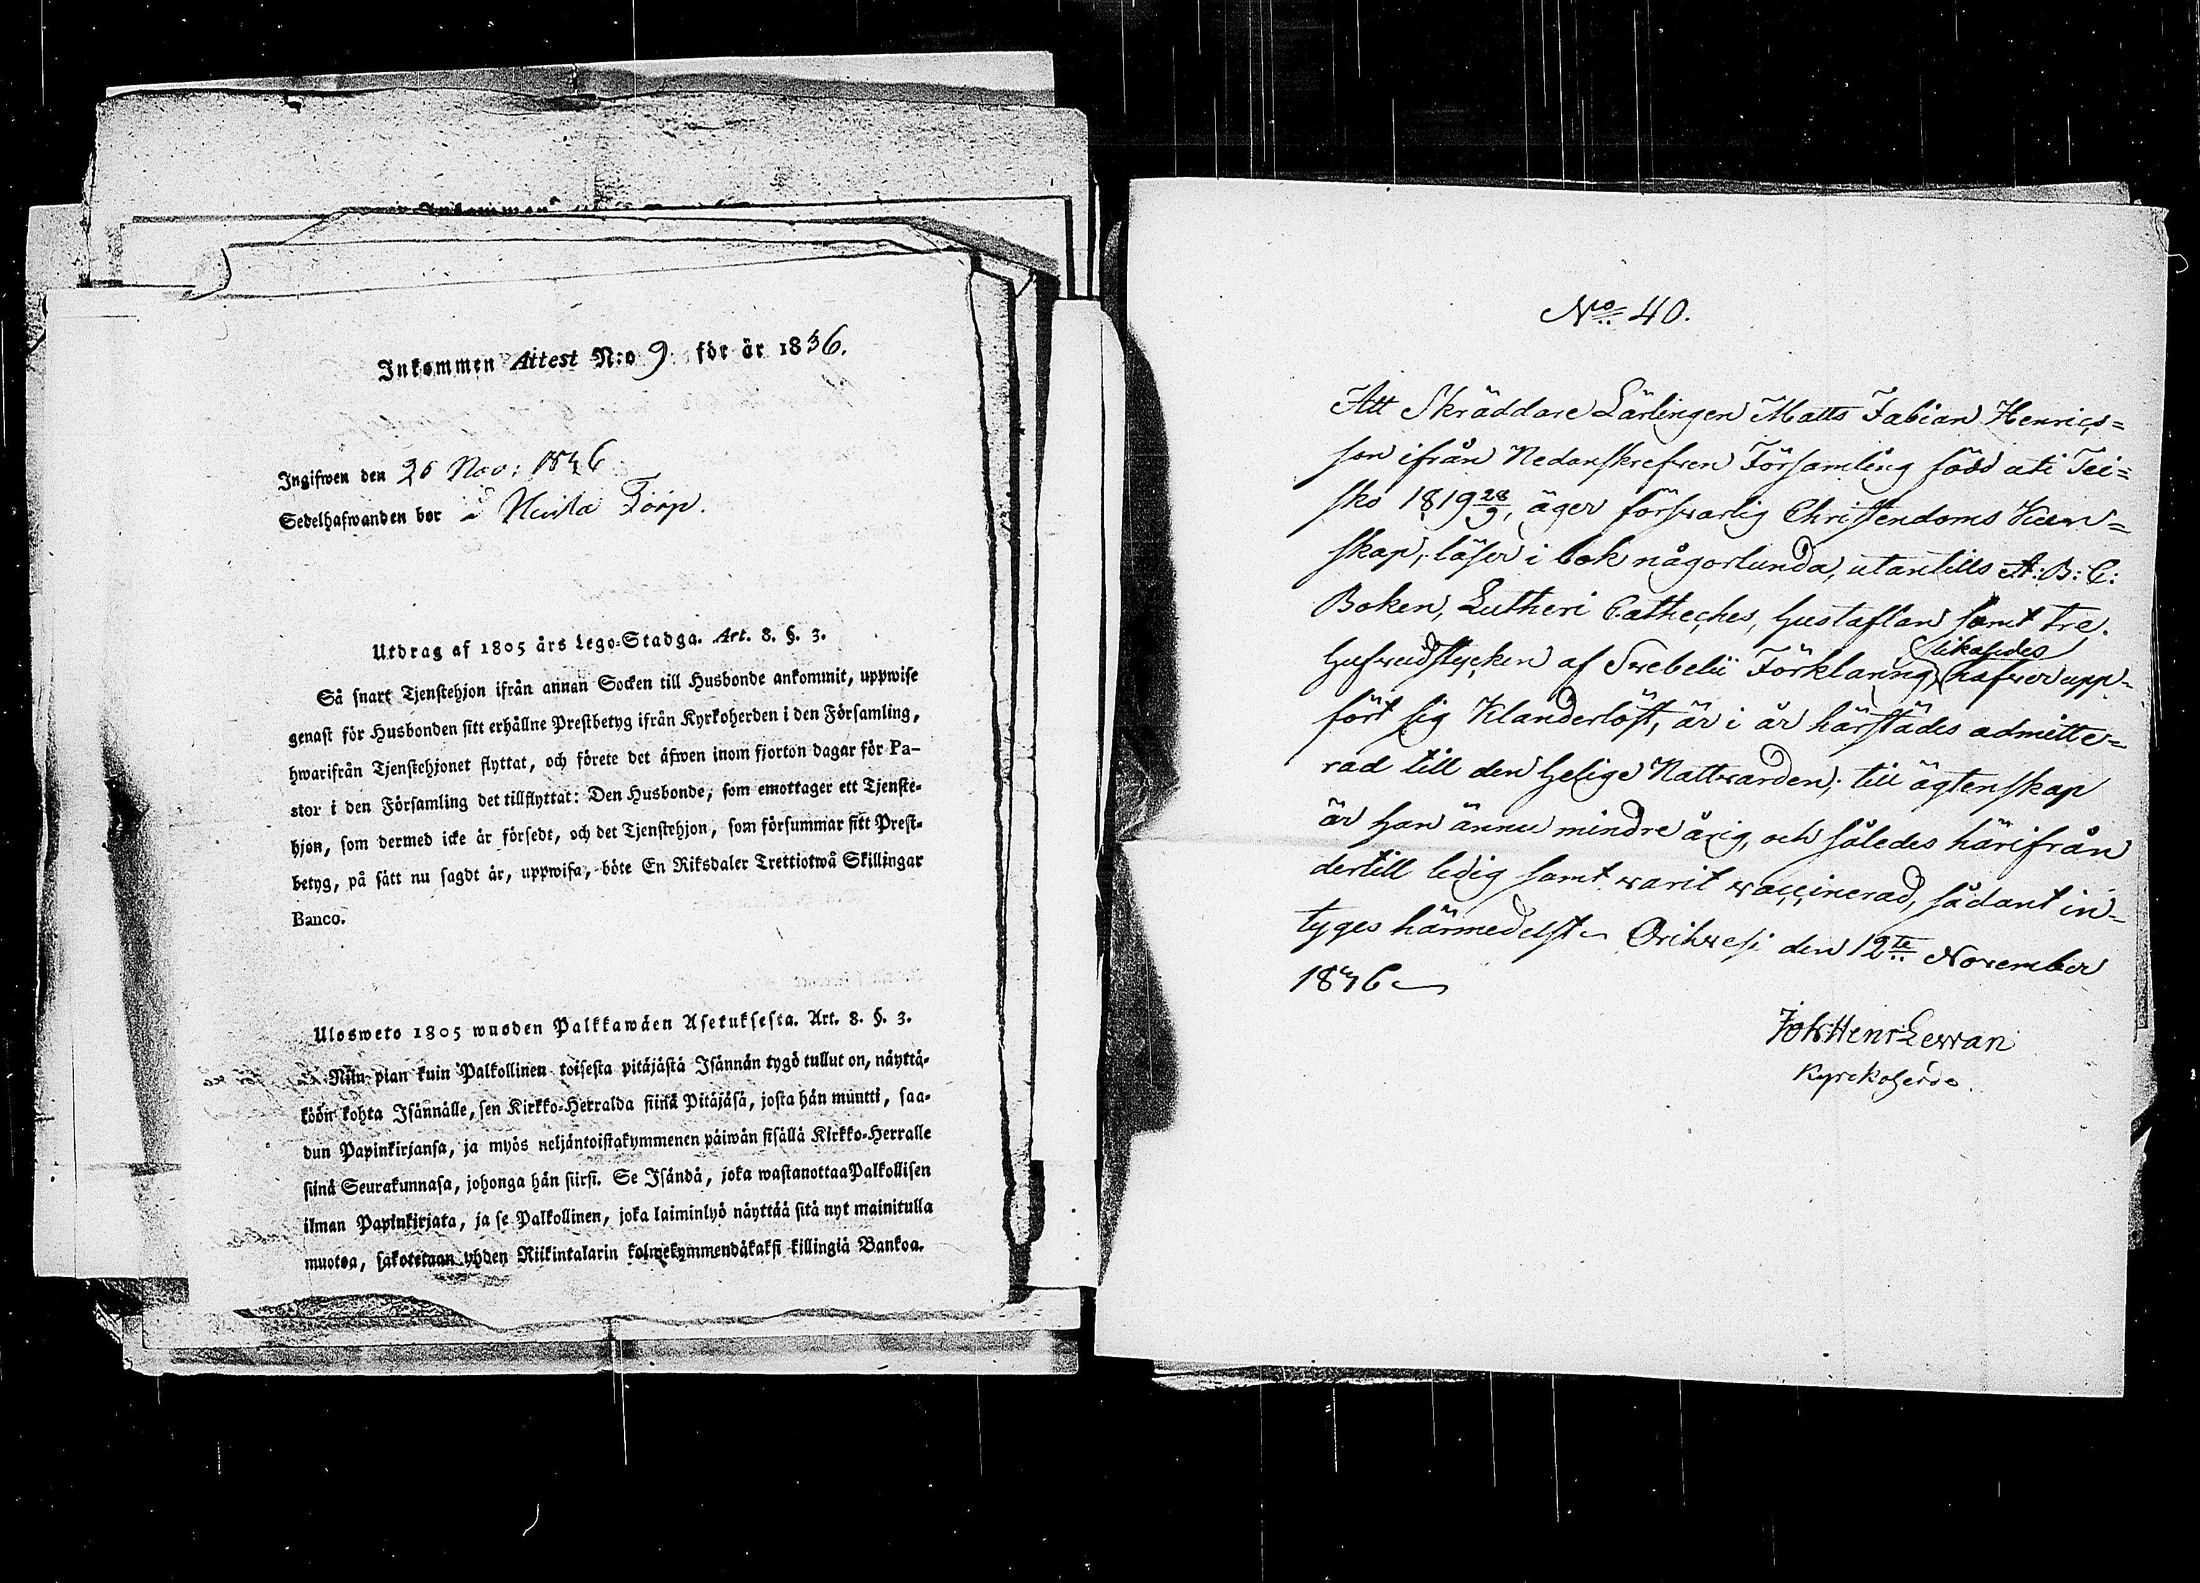 Inkommen Attest N:o 9 för år 1836.
Ingifwen den 26 Nov: 1836
Sedelhafwanden bor i Torp.
Utdrag af 1805 års Lego-Stadga. Art. 8. §. 3.
Så snart Tjenstehjon ifrån annan Socken till Husbonde ankommit, uppwise
genast för Husbonden sitt erhållne Prestbetyg ifrån Kyrkoherden i den Församling,
hwarifrån Tjenstehjonet flyttat, och förete det äfwen inom fjorton dagar för Pa-
stor i den Församling det tillflyttat: Den Husbonde, som emottager ett Tjenste-
hjon, som dermed icke är försedt, och det Tjenstehjon, som försummar sitt Prest-
betyg, på sätt nu sagdt är, uppwisa, böte En Riksdaler Trettiotwå Skillingar
Banco.
Ulosweto 1805 wuoden Palkkawäen Asetuksesta. Art. 8. §. 3.
Niin pian kuin Palkollinen toisesta pitäjästä Isännän tygö tullut on, näyttä-
köön kohta Isännälle, sen Kirkko-Herralda siinä Pitäjäsä, josta hän muutti, saa-
dun Papinkirjansa, ja myös neljäntoistakymmenen päiwän sisällä Kirkko-Herralle
siinä Seurakunnasa, johonga hän siirsi. Se Isändä, joka wastanottaa Palkollisen
ilman Papinkirjata, ja se Palkollinen, joka laiminlyö näyttää sitä nyt mainitulla
muotoa, sakotetaan yhden Riikintalarin kolmekymmendäkaksi killingiä Bankoa.
No 40.
Att Skräddare Lärlingen Matts Fabian Henrics=
son ifrån Nedanskrefven Församling född uti Tei=
sko 1819 28/9, äger försvarlig Christendoms Kun=
skap, läser i bok någorlunda, utantills A:B:C:
Boken, Lutheri Catheches, Hustaflan samt tre
Hufvudstycken af Svebelii Förklaring, likaledes hafver upp=
fört sig Klanderlöst, är i år härstädes admitte=
rad till den Helige Nattvarden; till ägtenskap
är Han ännu mindre årig, och således härifrån
dertill ledig samt varit vaccinerad, sådant in=
tyges härmedelst Orihvesi den 12te November
1836
Joh Henr Levvan
Kyrckoherde.